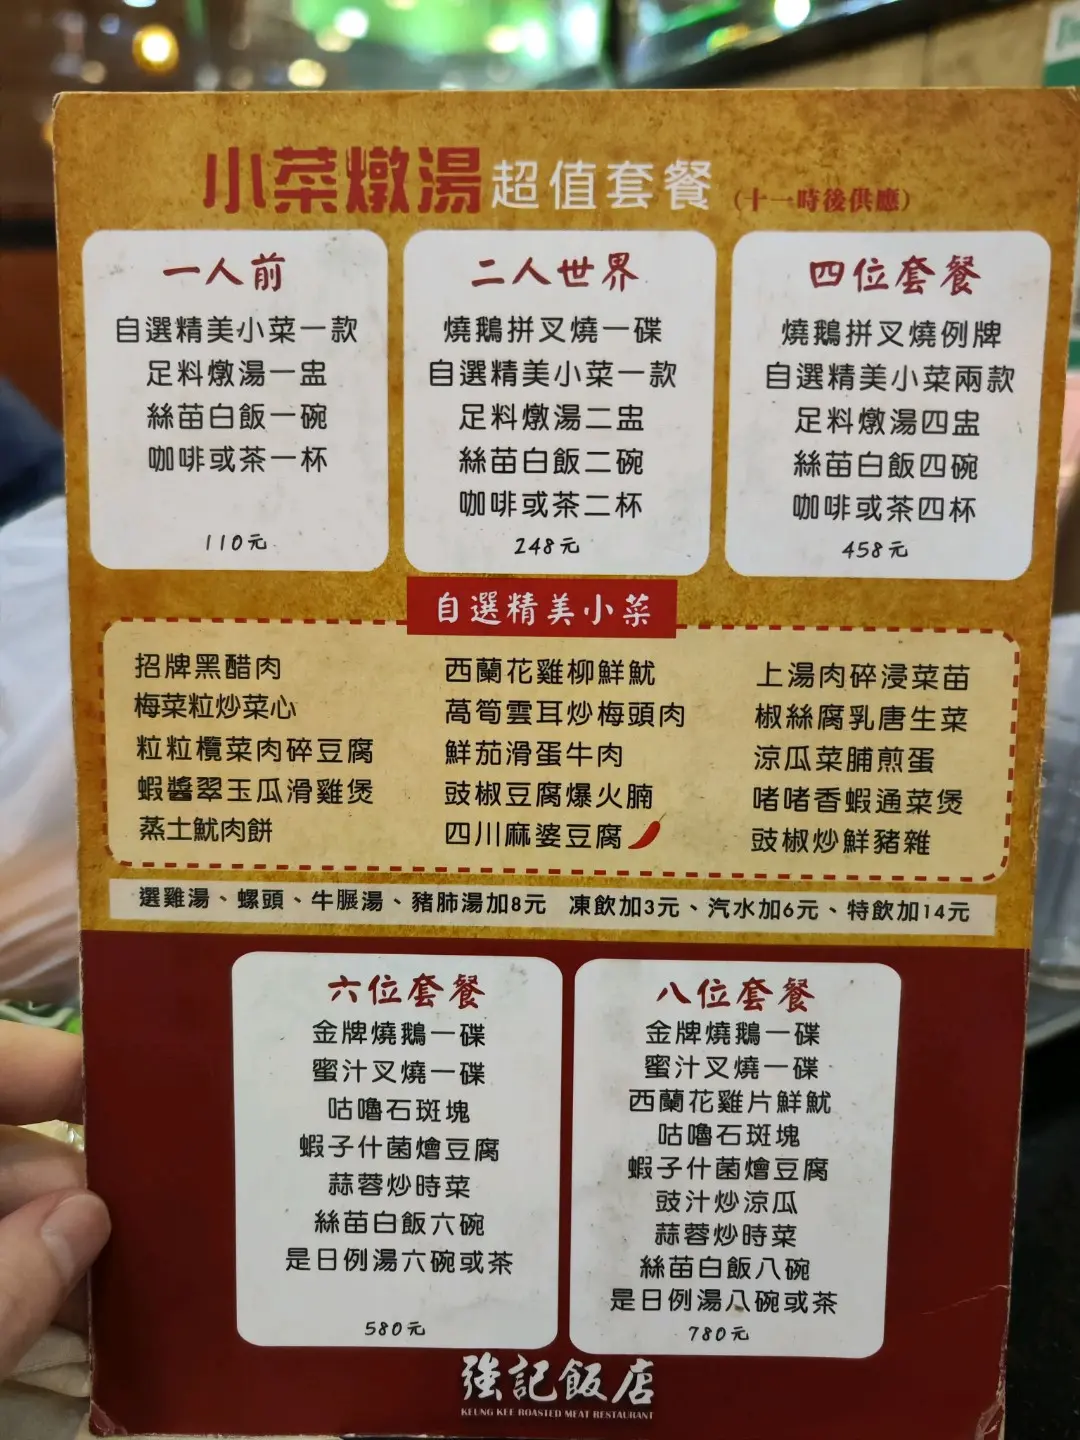 小菜燉湯超值套餐(十一時後供應)
一人前
自選精美小菜一款
足料燉湯一盅
絲苗白飯一碗
咖啡或茶一杯
110元
二人世界
燒鵝拼叉燒一碟
自選精美小菜一款
足料燉湯二盅
絲苗白飯二碗
咖啡或茶二杯
248元
四位套餐
燒鵝拼叉燒例牌
自選精美小菜兩款
足料燉湯四盅
絲苗白飯四碗
咖啡或茶四杯
458元
自選精美小菜
招牌黑醋肉
梅菜粒炒菜心
粒粒欖菜肉碎豆腐
蝦醬翠玉瓜滑雞煲
蒸土魷肉餅
西蘭花雞柳鮮魷
萵筍雲耳炒梅頭肉
鮮茄滑蛋牛肉
豉椒豆腐爆火腩
四川麻婆豆腐
上湯肉碎浸菜苗
椒絲腐乳唐生菜
涼瓜菜脯煎蛋
啫啫香蝦通菜煲
豉椒炒鮮豬雜
選雞湯、螺頭、牛𦟌湯、豬肺湯加8元 凍飲加3元、汽水加6元、特飲加14元
六位套餐
金牌燒鵝一碟
蜜汁叉燒一碟
咕嚕石斑塊
蝦子什菌燴豆腐
蒜蓉炒時菜
絲苗白飯六碗
是日例湯六碗或茶
580元
八位套餐
金牌燒鵝一碟
蜜汁叉燒一碟
西蘭花雞片鮮魷
咕嚕石斑塊
蝦子什菌燴豆腐
豉汁炒涼瓜
蒜蓉炒時菜
絲苗白飯八碗
是日例湯八碗或茶
780元
強記飯店
KEUNG KEE ROASTED MEAT RESTAURANT